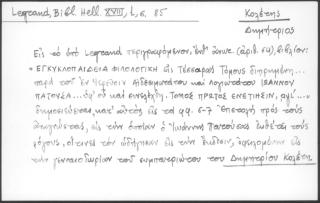 Legrand, Bibl. Hell. XVIII, 1, σ. 85
Κολέτης
Δημήτριος
Εἰς τὸ ὑπὸ Legrand περιγραφόμενον, ὑπ' (ἀριθ. 84), βιβλίον:
«ΕΓΚΥΚΛΟΠΑΙΔΕΙΑ ΦΙΛΟΛΟΓΙΚΗ εἰς Τέσσαρας Τόμους διῃρημένη...
παρὰ τοῦ ἐν Ἱερεῦσιν Αἰδεσιμωτάτου καὶ Λογιωτάτου ΙΩΑΝΝΟΥ
ΠΑΤΟΥΣΑ... ΤΟΜΟΣ ΠΡΩΤΟΣ ΕΝΕΤΙΗΣΙΝ,
δημοσιεύεται, κατ' αὐτὸν, εἰς τὰς σσ. 5-7 πρὸς τοὺς
εἰς τὴν ὁποίαν ὁ Ἰωάννης Πατούσας ἐκθέτει τοὺς
λόγους, οἵτινες τὸν ὡδήγησαν εἰς τὴν ἔκδοσιν, εἰς
τὴν γενναιοδωρίαν τοῦ συμπατριώτου του Δημητρίου Κολέτη.